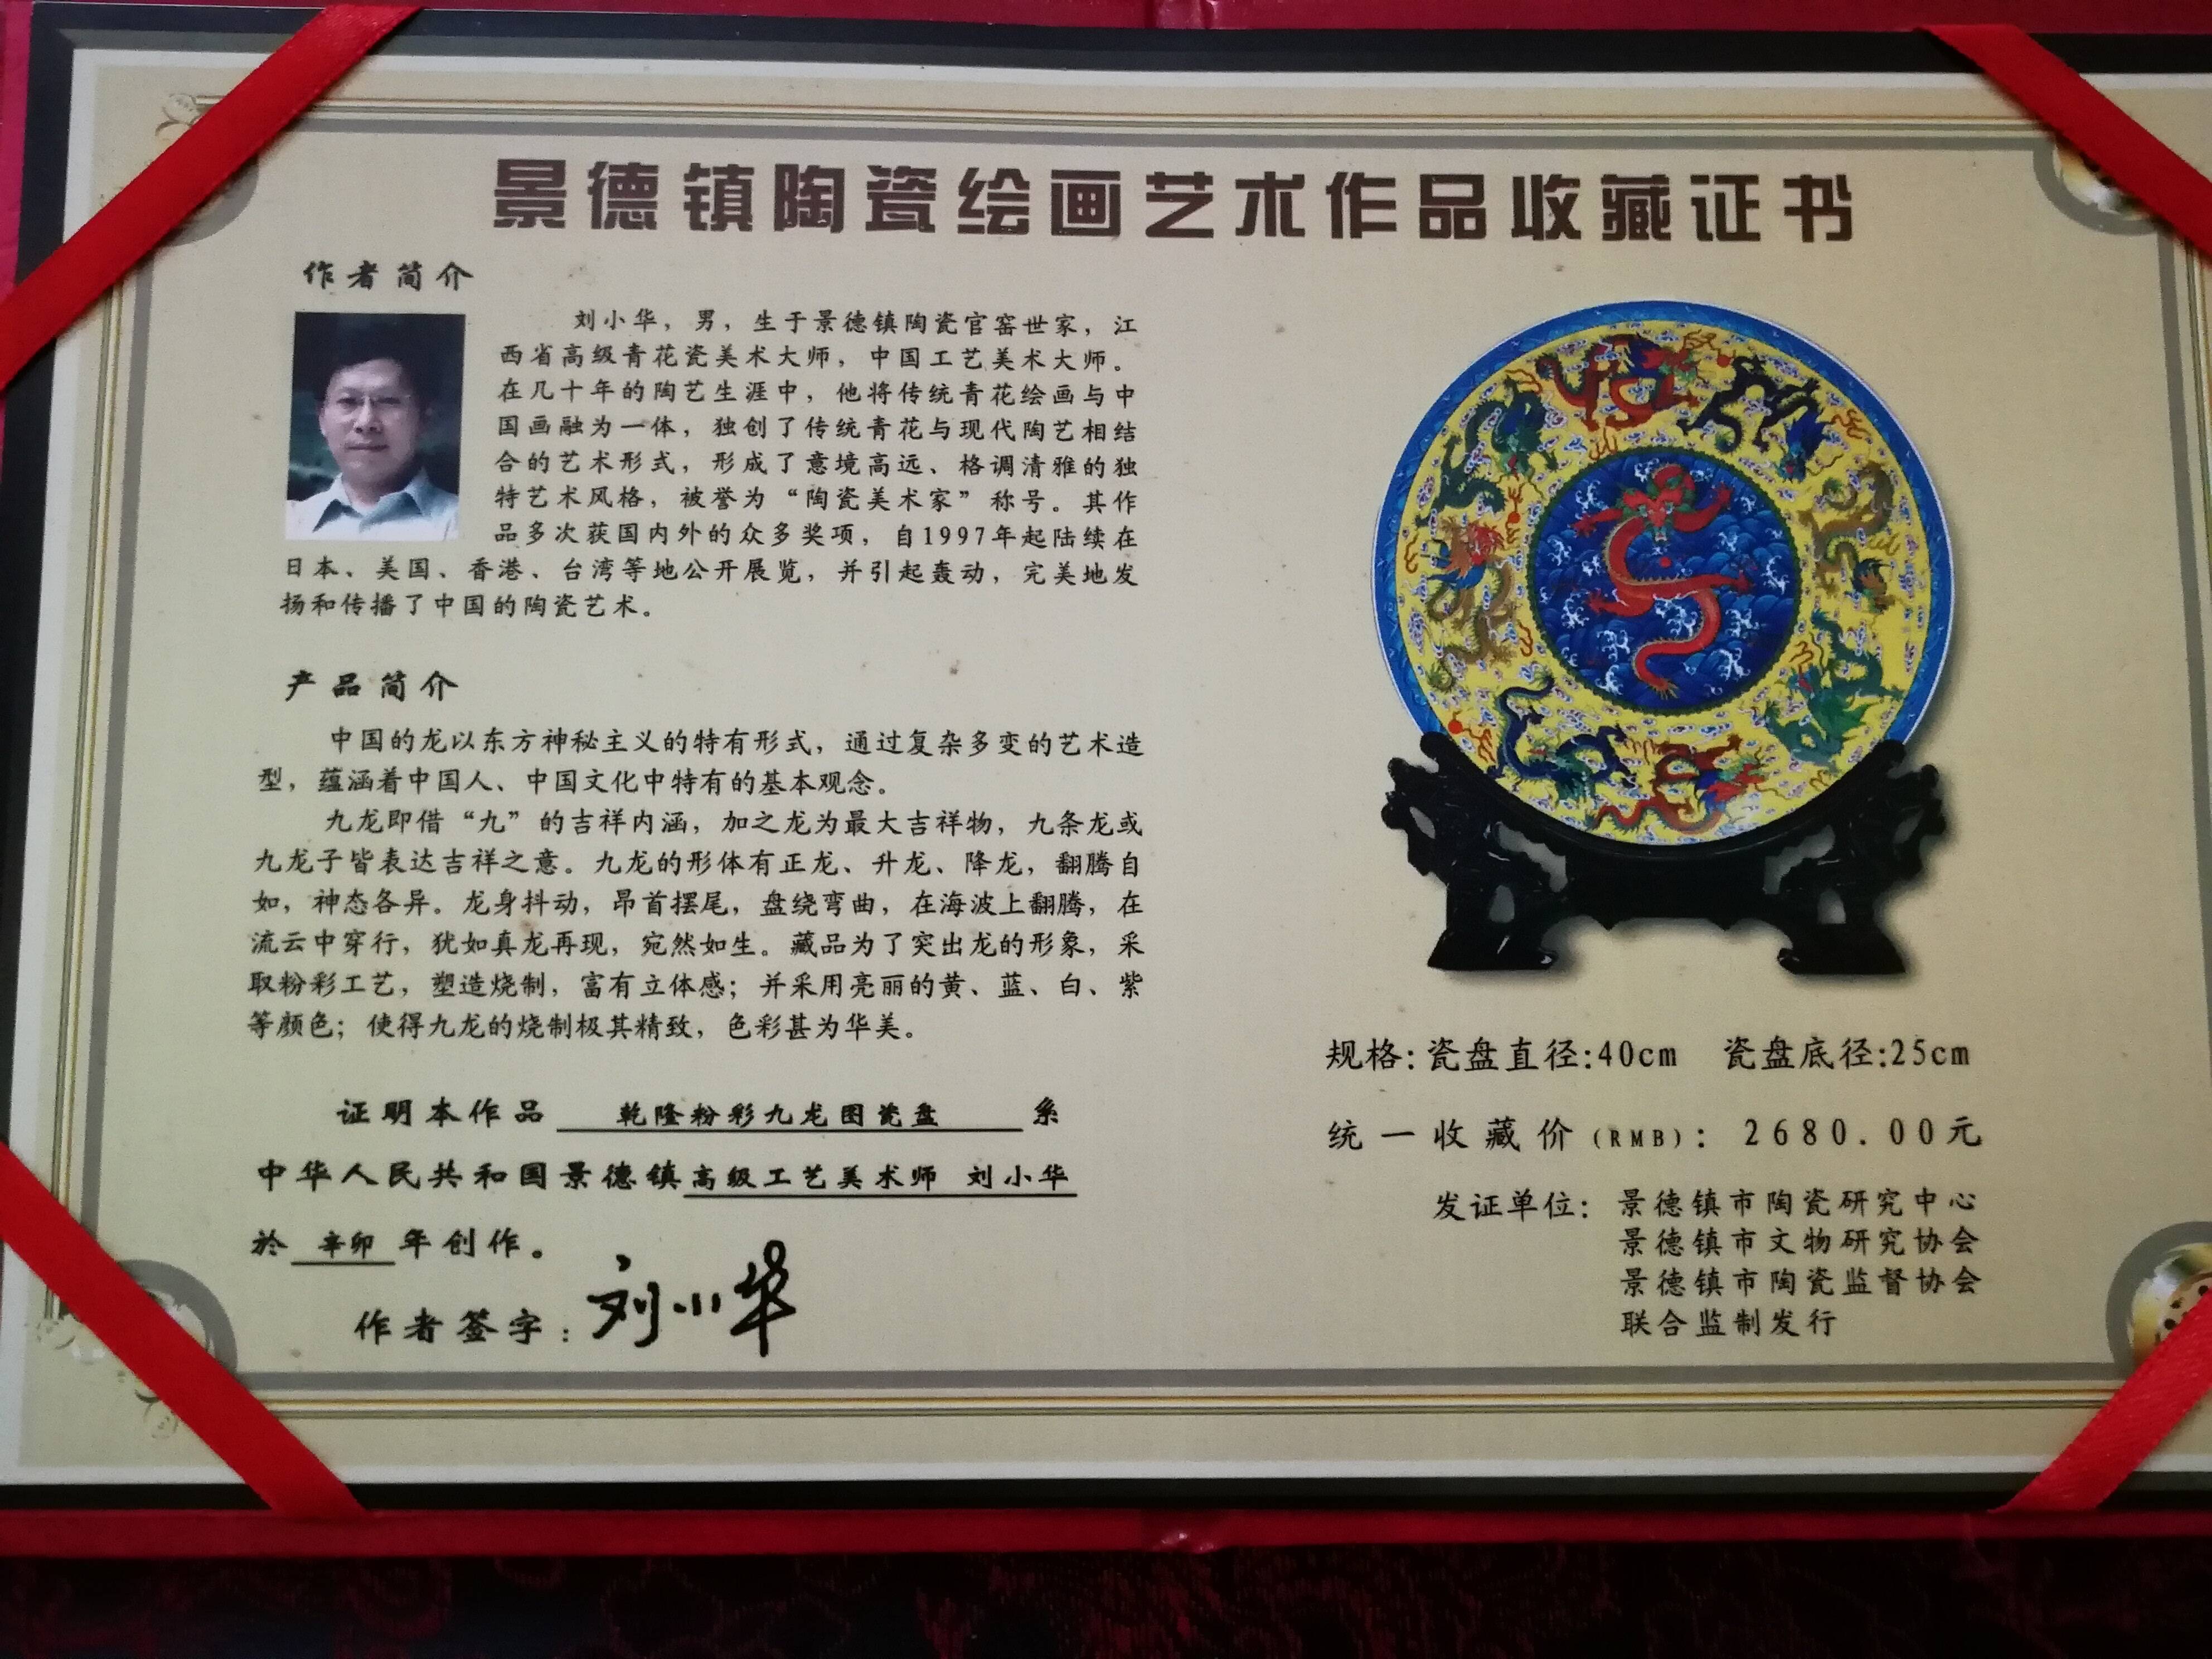 景德镇陶瓷绘画艺术作品收藏证书
作者简介
刘小华，男，生于景德镇陶瓷官窑世家，江
西省高级青花瓷美术大师，中国工艺美术大师。
在几十年的陶艺生涯中，他将传统青花绘画与中
国画融为一体，独创了传统青花与现代陶艺相结
合的艺术形式，形成了意境高远、格调清雅的独
特艺术风格，被誉为“陶瓷美术家”称号。其作
品多次获国内外的众多奖项，自1997年起陆续在
日本、美国、香港、台湾等地公开展览，并引起轰动，完美地发
扬和传播了中国的陶瓷艺术。
产品简介
中国的龙以东方神秘主义的特有形式，通过复杂多变的艺术造
型，蕴涵着中国人、中国文化中特有的基本观念。
九龙即借“九”的吉祥内涵，加之龙为最大吉祥物，九条龙或
九龙子皆表达吉祥之意。九龙的形体有正龙、升龙、降龙，翻腾自
如，神态各异。龙身抖动，昂首摆尾，盘绕弯曲，在海波上翻腾，在
流云中穿行，犹如真龙再现，宛然如生。藏品为了突出龙的形象，采
取粉彩工艺，塑造烧制，富有立体感；并采用亮丽的黄、蓝、白、紫
等颜色；使得九龙的烧制极其精致，色彩甚为华美。
证明本作品 乾隆粉彩九龙图瓷盘 系
中华人民共和国景德镇高级工艺美术师 刘小华
於 辛卯 年创作。
作者签字：刘小华
规格：瓷盘直径:40cm 瓷盘底径:25cm
统一收藏价（RMB）：2680.00元
发证单位：景德镇市陶瓷研究中心
景德镇市文物研究协会
景德镇市陶瓷监督协会
联合监制发行